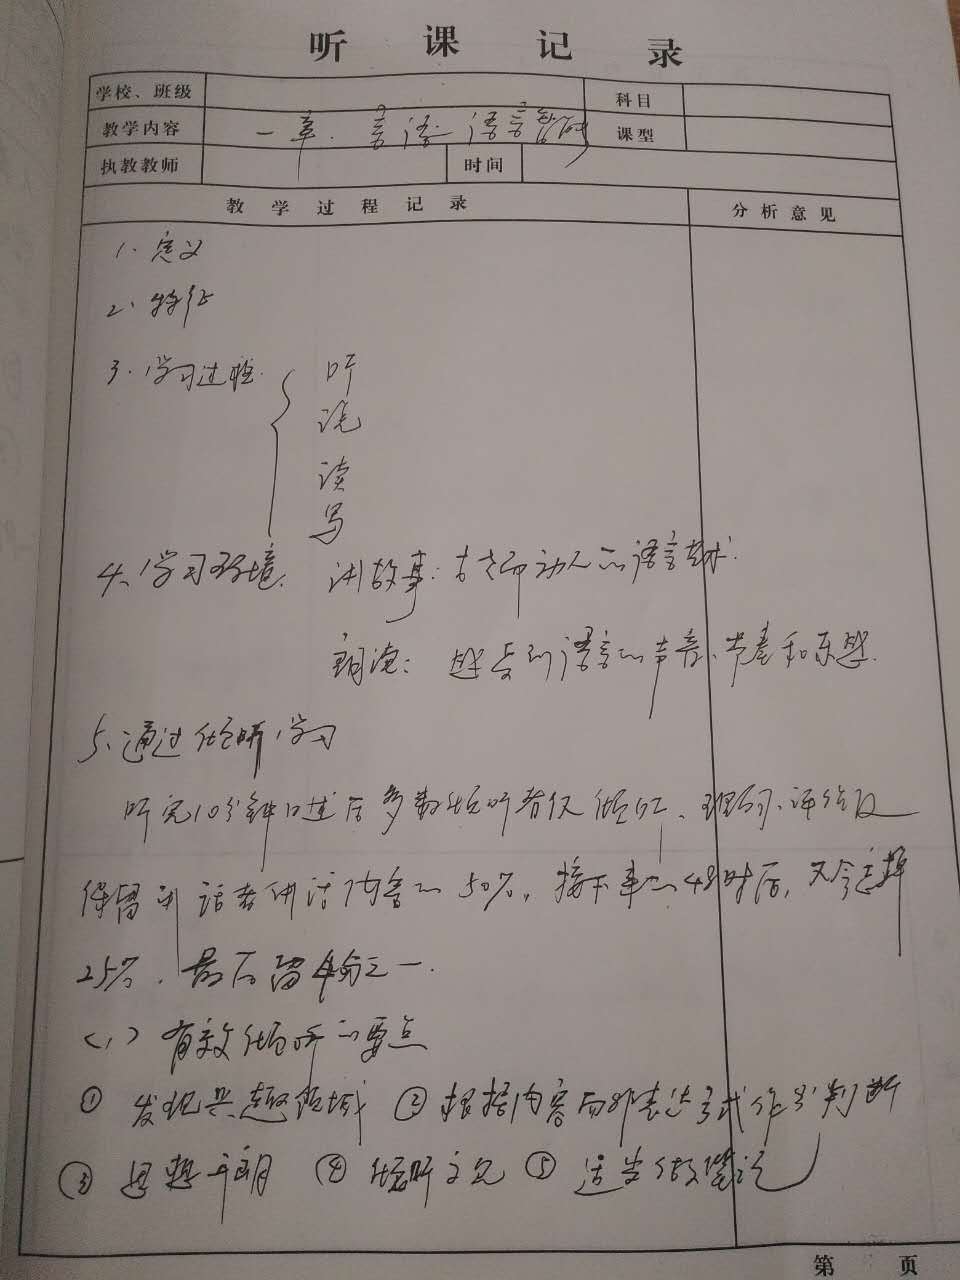 听课记录
学校、班级 科目
教学内容 一章. 言语. 语言 课型
执教教师 时间
教学过程记录 分析意见
1、定义
2、特征
3、学习过程 听
说
读
写
4、学习环境. 讲故事: 动人的语言艺术.
朗读: 到语言的声音、节奏和
5、通过倾听学习
听完10分钟口述后多数倾听者仅 、理解、评价及
保留到话者讲话内容的50%, 接下来的48小时后, 又会
25%, 最后留 分之一.
(1) 有效倾听的要点
① 发现兴趣领域 ② 根据内容而非表达方式作出判断
③ 思想开朗 ④ 倾听 ⑤ 适当做笔记
第 页